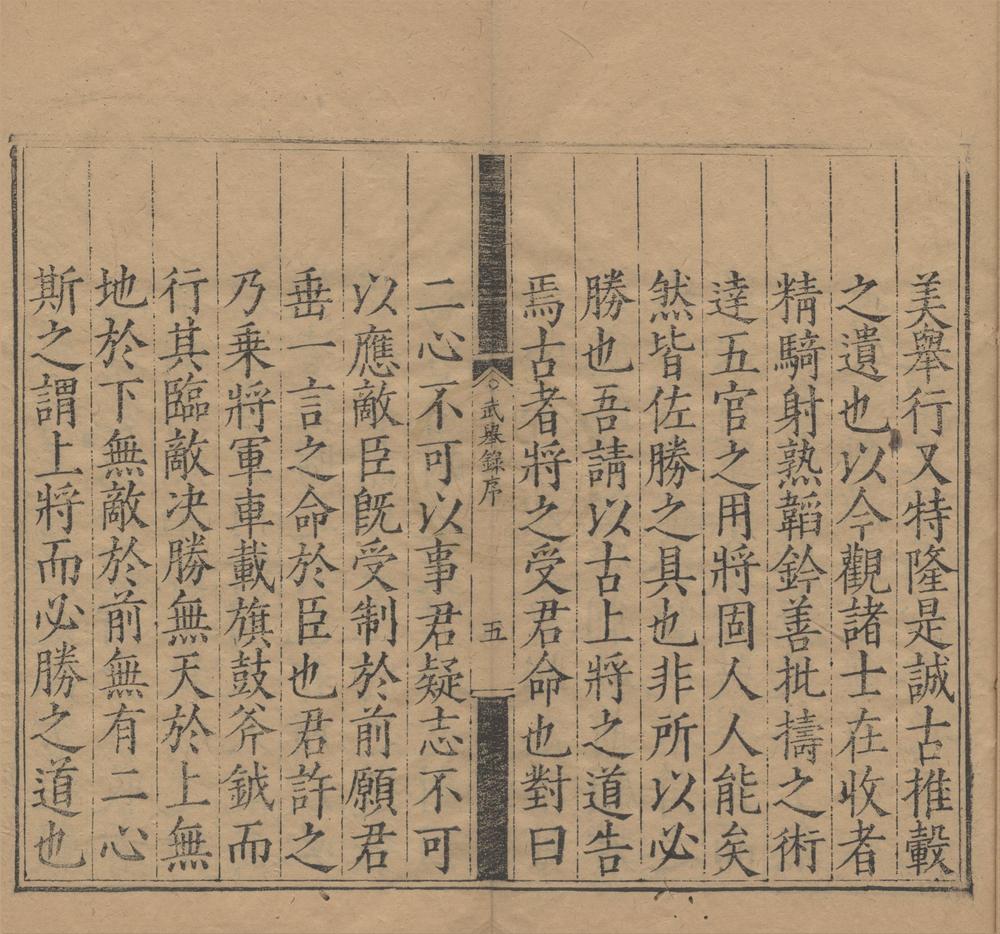 美舉行又特隆是誠古推轂
之遺也以今觀諸士在收者
精騎射熟韜鈐善批擣之術
達五官之用將固人人能矣
然皆佐勝之具也非所以必
勝也吾請以古上將之道告
焉古者將之受君命也對曰
武舉錄序
五
二心不可以事君疑志不可
以應敵臣旣受制於前願君
垂一言之命於臣也君許之
乃乗將軍車載旗鼓斧鉞而
行其臨敵决勝無天於上無
地於下無敵於前無有二心
斯之謂上將而必勝之道也